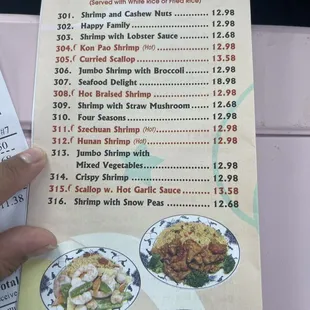 (Served with White Rice or Fried Rice)
301. Shrimp and Cashew Nuts 12.98
302. Happy Family 12.98
303. Shrimp with Lobster Sauce 12.68
304. Kon Pao Shrimp (Hot) 12.98
305. Curried Scallop 13.58
306. Jumbo Shrimp with Broccoli 12.98
307. Seafood Delight 18.98
308. Hot Braised Shrimp 12.98
309. Shrimp with Straw Mushroom 12.68
310. Four Seasons 12.98
311. Szechuan Shrimp (Hot) 12.98
312. Hunan Shrimp (Hot) 12.98
313. Jumbo Shrimp with
Mixed Vegetables 12.98
314. Crispy Shrimp 12.98
315. Scallop w. Hot Garlic Sauce 13.58
316. Shrimp with Snow Peas 12.68